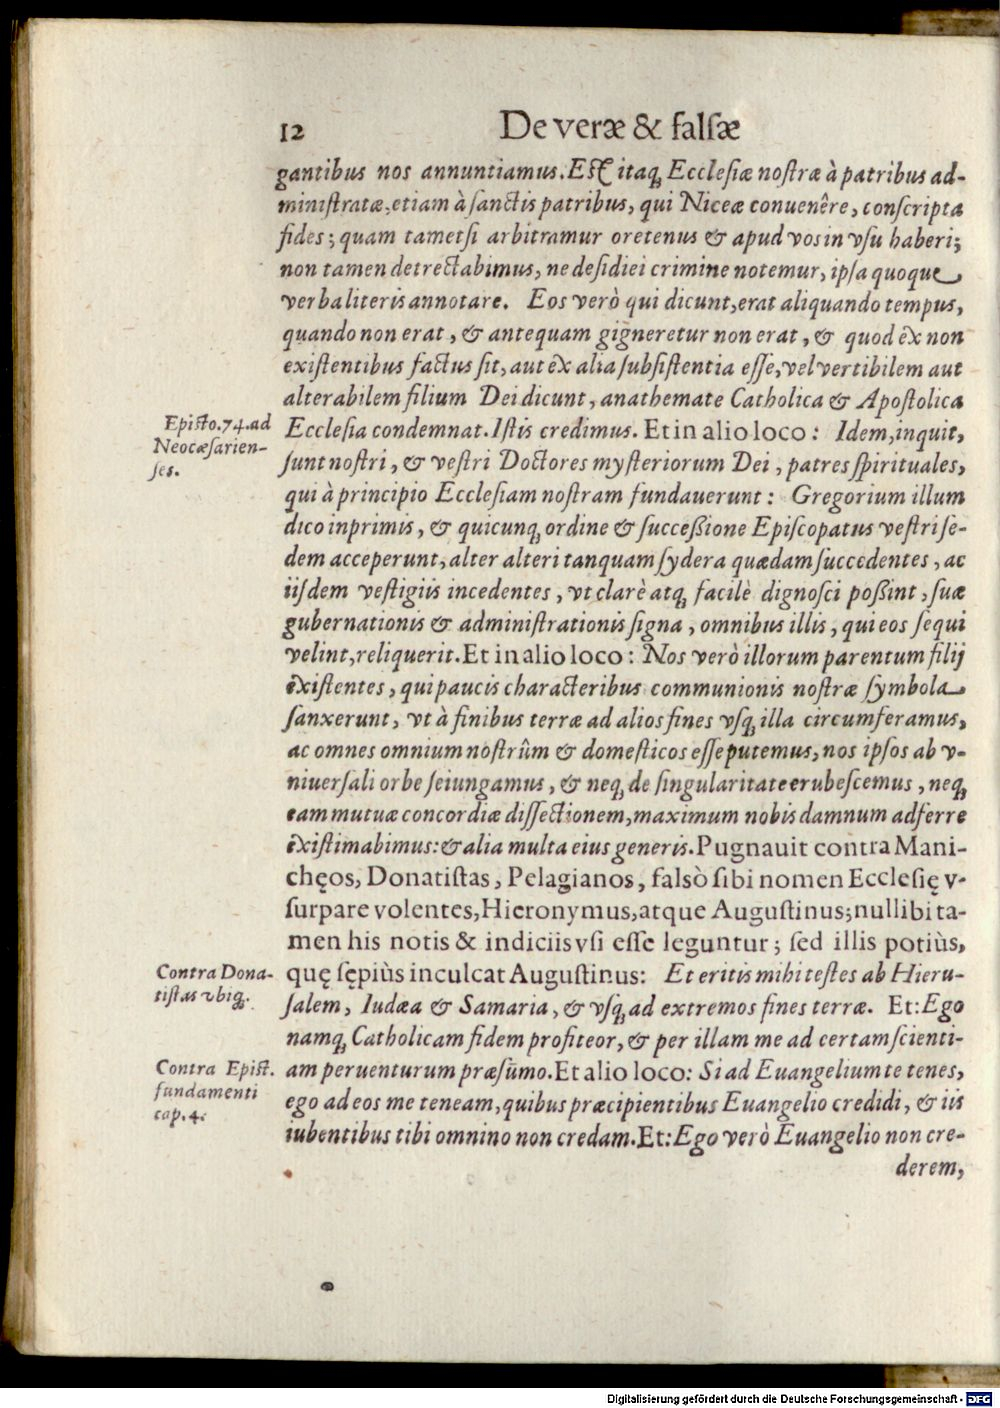 12 De veræ & falsæ
gantibus nos annuntiamus. Est itaq; Ecclesiæ nostræ à patribus ad-
ministratæ, etiam à sanctis patribus, qui Niceæ conuenêre, conscripta
fides; quam tametsi arbitramur oretenus & apud vos in vsu haberi;
non tamen detrectabimus, ne desidiei crimine notemur, ipsa quoque
verba literis annotare. Eos verò qui dicunt, erat aliquando tempus,
quando non erat, & antequam gigneretur non erat, & quod êx non
existentibus factus sit, aut êx alia subsistentia esse, vel vertibilem aut
alterabilem filium Dei dicunt, anathemate Catholica & Apostolica
Ecclesia condemnat. Istis credimus. Et in alio loco: Idem, inquit,
sunt nostri, & vestri Doctores mysteriorum Dei, patres spirituales,
qui à principio Ecclesiam nostram fundauerunt: Gregorium illum
dico inprimis, & quicunq; ordine & successione Episcopatus vestri se-
dem acceperunt, alter alteri tanquam sydera quædam succedentes, ac
iisdem vestigiis incedentes, vt clarè atq; facilè dignosci possint, suæ
gubernationis & administrationis signa, omnibus illis, qui eos sequi
velint, reliquerit. Et in alio loco: Nos verò illorum parentum filij
êxistentes, qui paucis characteribus communionis nostræ symbola
sanxerunt, vt à finibus terræ ad alios fines vsq; illa circumferamus,
ac omnes omnium nostrûm & domesticos esse putemus, nos ipsos ab v-
niuersali orbe seiungamus, & neq; de singularitate erubescemus, neq;
eam mutuæ concordiæ dissectionem, maximum nobis damnum adferre
êxistimabimus: & alia multa eius generis. Pugnauit contra Mani-
chęos, Donatistas, Pelagianos, falsò sibi nomen Ecclesię v-
surpare volentes, Hieronymus, atque Augustinus; nullibi ta-
men his notis & indiciis vsi esse leguntur; sed illis potiùs,
quę sępiùs inculcat Augustinus: Et eritis mihi testes ab Hieru-
salem, Iudæa & Samaria, & vsq; ad extremos fines terræ. Et: Ego
namq; Catholicam fidem profiteor, & per illam me ad certam scienti-
am peruenturum præsumo. Et alio loco: Si ad Euangelium te tenes,
ego ad eos me teneam, quibus præcipientibus Euangelio credidi, & iis
iubentibus tibi omnino non credam. Et: Ego verò Euangelio non cre-
derem,
Episto. 74. ad
Neocæsarien-
ses.
Contra Dona-
tistas vbiq;.
Contra Epist.
fundamenti
cap. 4.
Digitalisierung gefördert durch die Deutsche Forschungsgemeinschaft - DFG